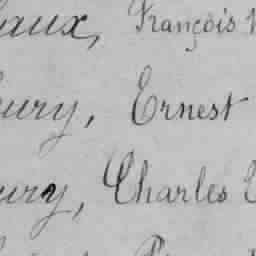 aux, François
ury, Ernest
ury, Charles